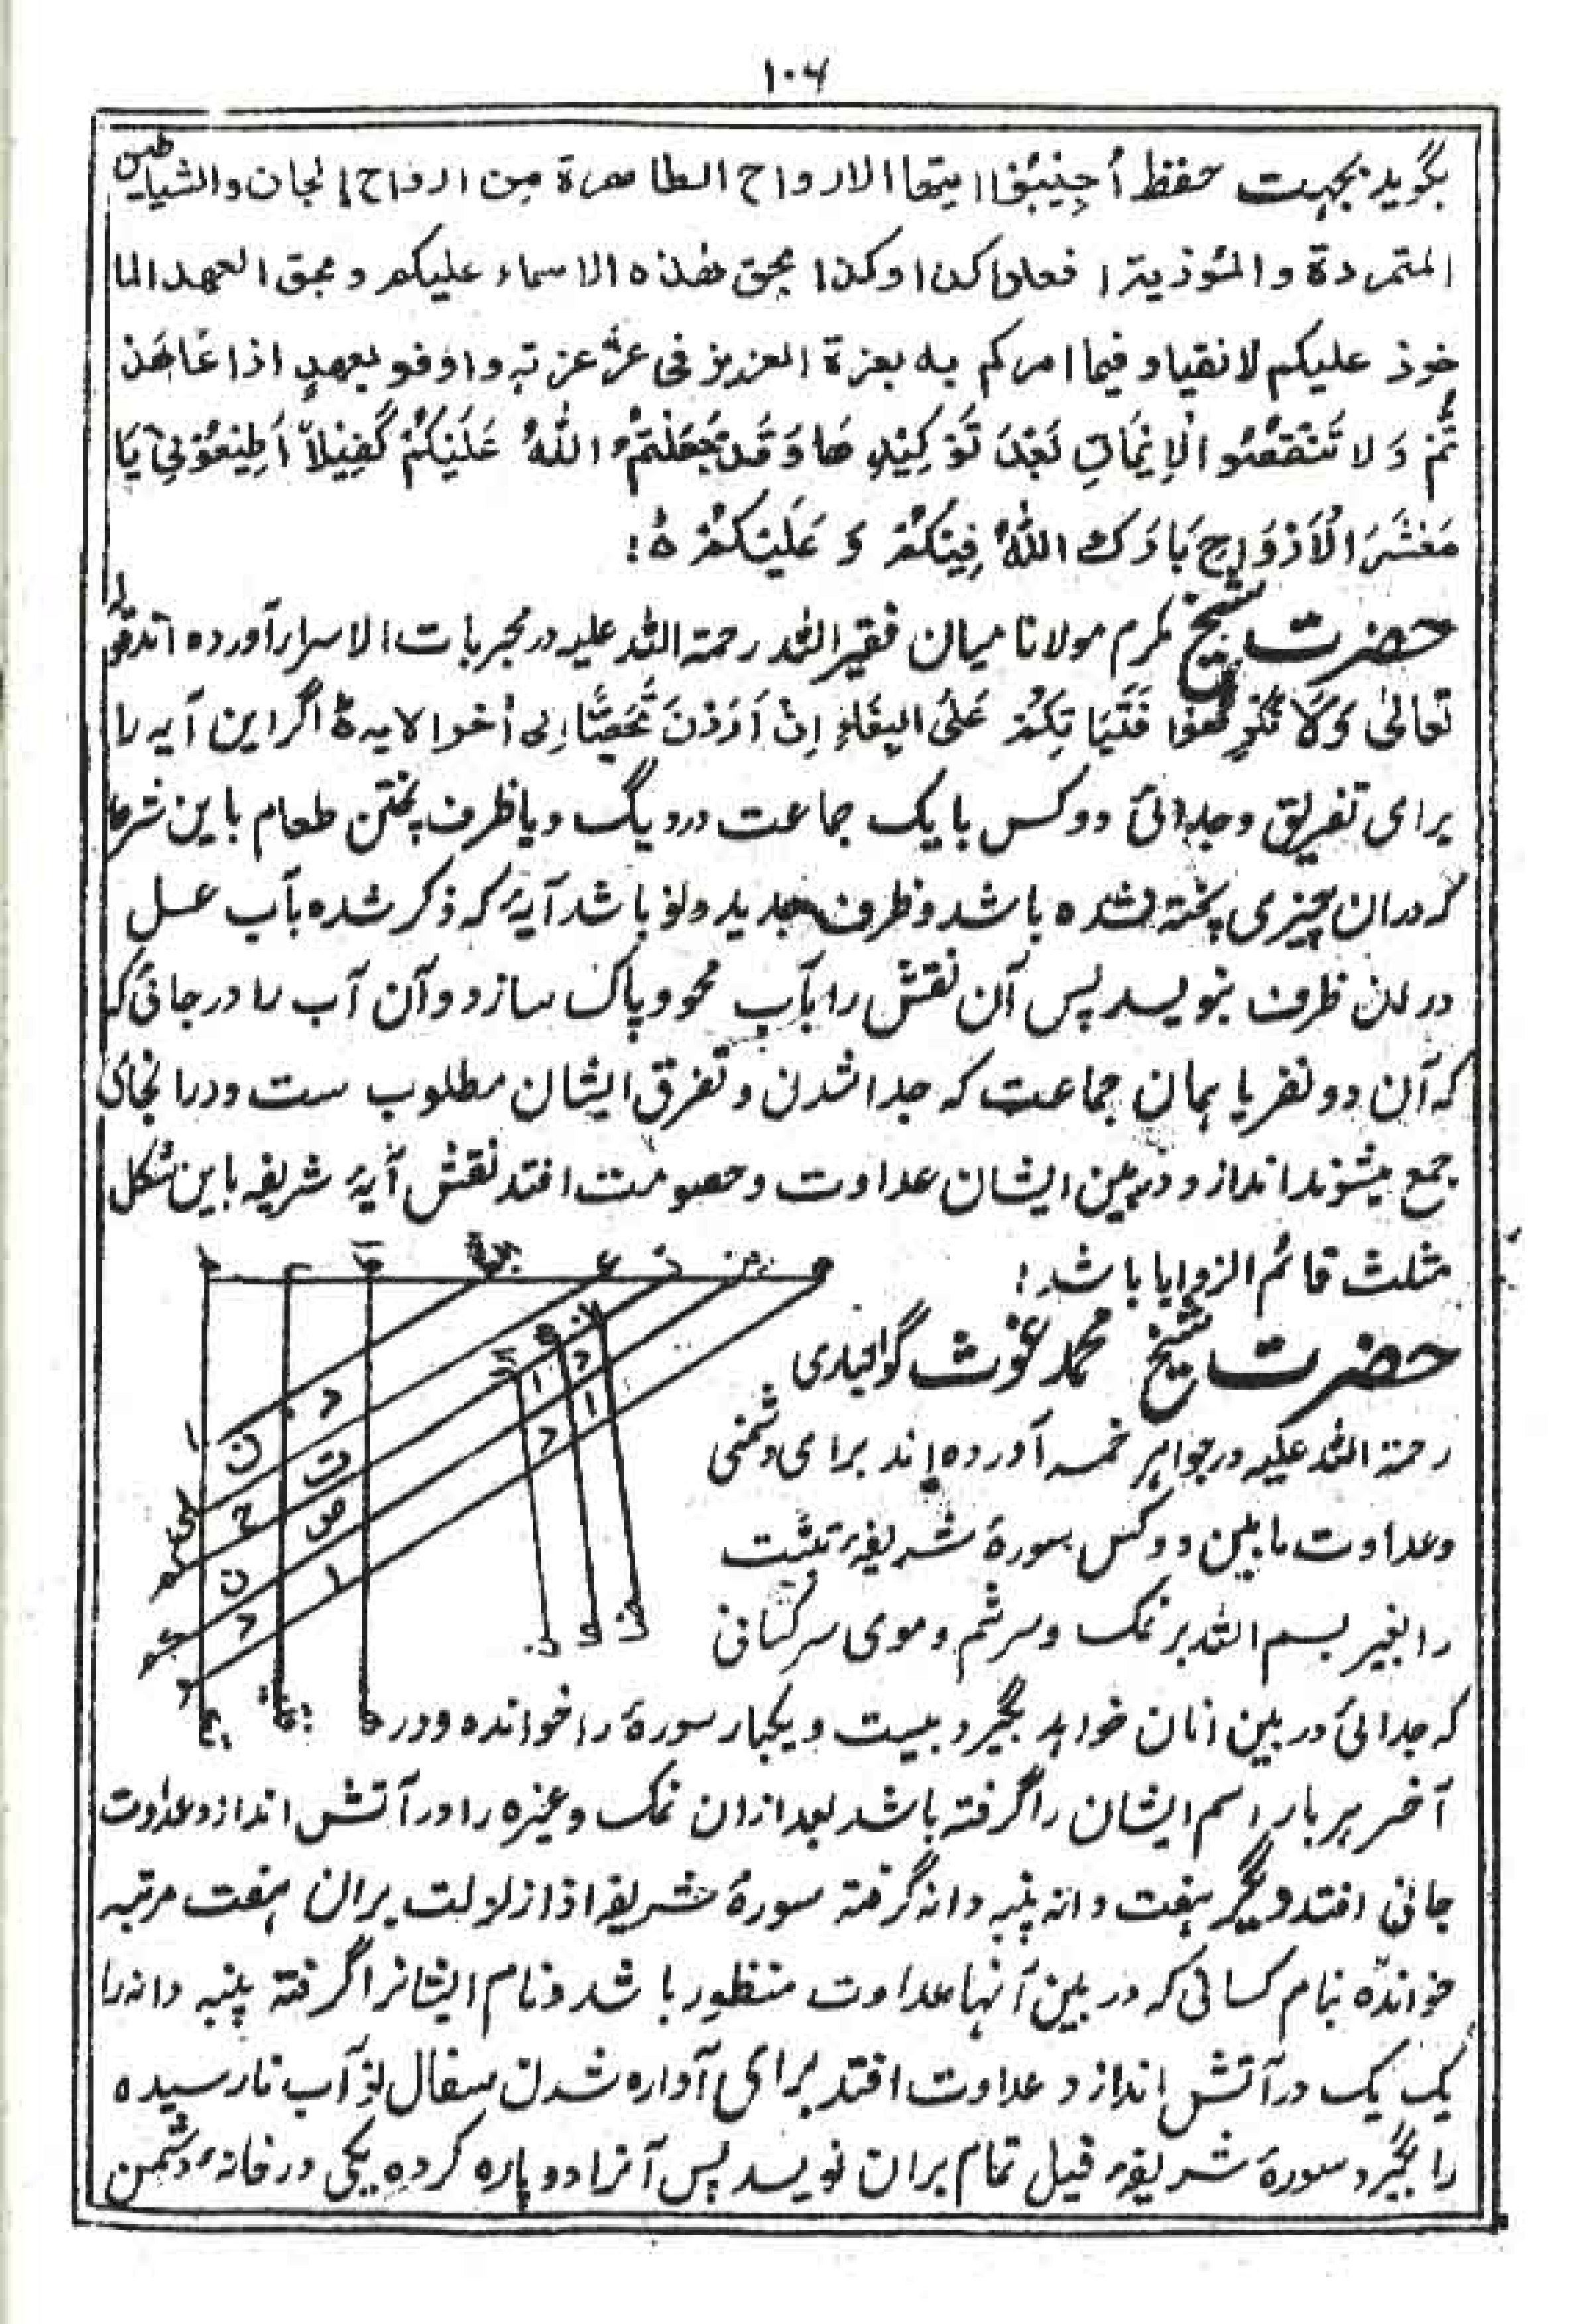 ۱۰۶
بگوید بجهت حفظ أجیبوا ایتها الارواح الطاهرة من ارواح الجان والشیاطین
المتمردة والمؤذیترا فعلوا کذا وکذا بحق هذه الاسماء علیکم و بحق العهد الما
خوذ علیکم لانقیاد فیما امرکم به بعزة العزیز فی عزّ عزته واوفو بعهد اذا عَاهَد
تُّمْ وَلا تَنْقُضُو الْاِیْمَانِ بَعْدَ تَوْکِیْدِ هَا وَقَدْ جَعَلْتُمُ اللّٰهُ عَلَیْکُمْ کَفِیْلاً اَطِیْعُوْنِیْ یَا
مَعْشَرَ الْاَرْوَاحِ بَارَک اللّٰهُ فِیْکُمْ وَ عَلَیْکُمْ ہ:
حضرت شیخ مکرم مولانا میان فقیر اللّٰه رحمة اللّٰه علیه در مجربات الاسرار آورده اند قوله
تعالیٰ وَلَا تُکْرِهُوْا فَتَیَا تِکُمْ عَلَی البِغَاءِ اِنْ اَرَدْنَ تَحَصُّنًا الی أخوا لایه ہ اگر این آیه را
برای تفریق و جدائی دوکس یا یک جماعت در دیگ و یا ظرف پختن طعام باین شرط
که دران چیزی پخته نشده باشد و ظرف جدید و نو باشد آیهٔ که ذکر شده بآب عسل
در ان ظرف بنویسد پس آن نقش را بآب محو و پاک سازد و آن آب را در جائی که
که آن دو نفر یا همان جماعت که جدا شدن و تفرق ایشان مطلوب ست و در انجای
جمع میشوند اندازد و در بین ایشان عداوت و خصومت افتد نقش آیهٔ شریفه باین شکل
مثلث قائم الزوایا باشد:
حضرت شیخ محمد غوث گوالیاری
رحمة اللّٰه علیه در جواهر خمسه آورده اند برای دشمنی
وعداوت مابین دوکس سورهٔ شریفهٔ تبّت
را بغیر بسم اللّٰه بر نمک و سرشم و موی سر کسانی
که جدائی در بین انان خواهد بگیرد بیست و یکبار سورهٔ را خوانده و در
آخر هر بار اسم ایشان را گرفته باشد بعد ازان نمک و غیره را در آتش اندازد عداوت
جانی افتد دیگر هفت دانه پنبه دانه گرفته سورهٔ شریفه اذا زلزلت بران هفت مرتبه
خوانده بنام کسانی که در بین آنها عداوت منظور باشد و نام ایشانرا گرفته پنبه دانه را
یک یک در آتش اندازد عداوت افتد برای آواره شدن سفال نو آب نارسیده
را بگیرد سورهٔ شریفهٔ فیل تمام بران نویسد پس آنرا دو پاره کرده یکی در خانهٔ دشمن